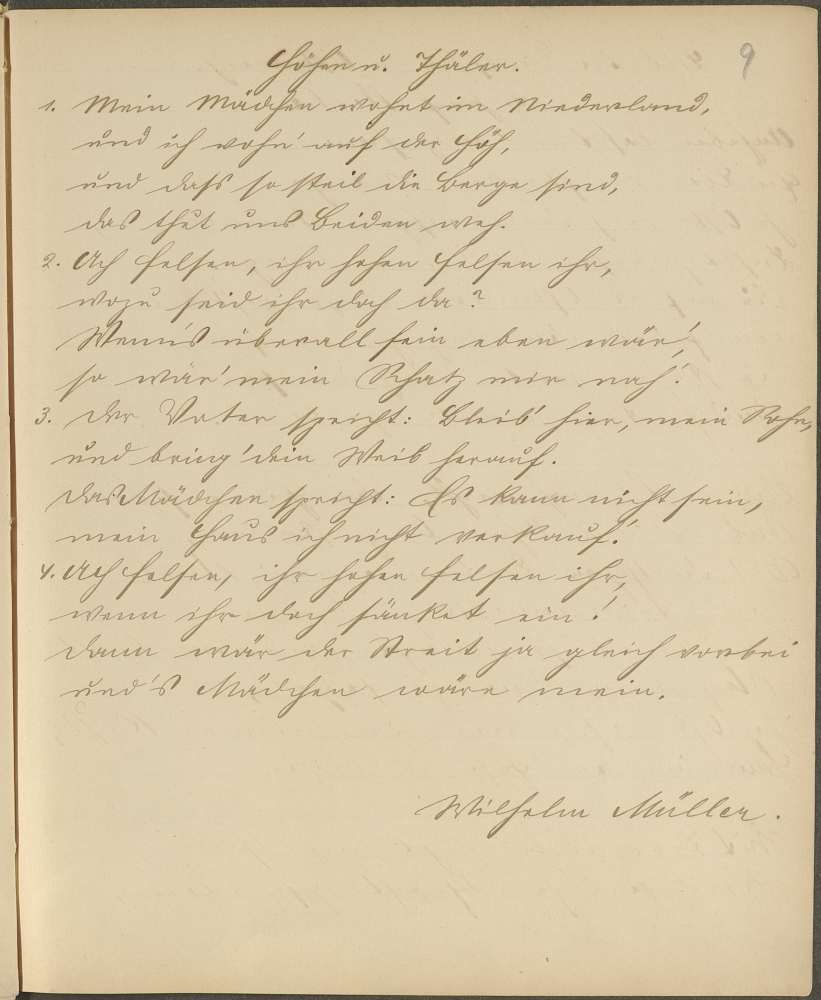 Höhen u. Thäler.
9
1. Mein Mädchen wohnt im Niederland,
und ich wohn' auf der Höh,
und dass so steil die Berge sind,
das thut uns Beiden weh.
2. Ach Felsen, ihr hohen Felsen ihr,
wozu seid ihr doch da?
Wenn's überall fein eben wär',
so wär' mein Schatz mir nah'.
3. der Vater spricht: Bleib' hier, mein Sohn,
und bring' dein Weib herauf.
das Mädchen spricht: Es kann nicht sein,
mein Haus ich nicht verkauf'.
4. Ach Felsen, ihr hohen Felsen ihr,
wenn ihr doch sänket ein!
dann wär der Streit ja gleich vorbei
und's Mädchen wäre mein.
Wilhelm Müller.